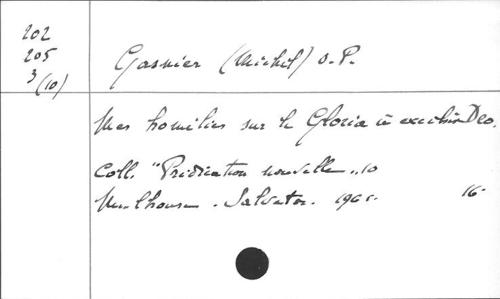 202
205
3(10)
Gasnier (Michel) O.P.
Mes homélies sur le Gloria in excelsis Deo.
Coll. "Prédication nouvelle", 10
Mulhouse. Salvator. 16-